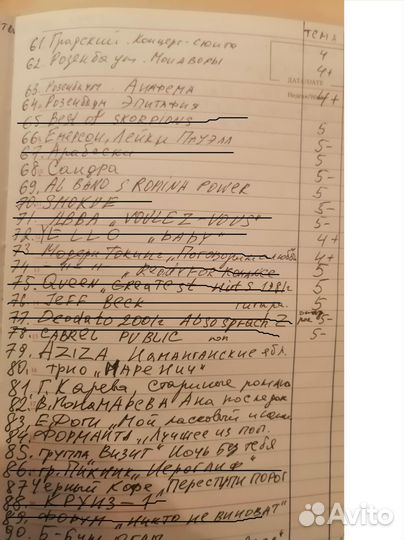 ТЕМА
61. Градский. Концерт-сюита 4
62. Розенбаум. Мои дворы 4+
63. Розенбаум. Анафема
64. Розенбаум Эпитафия 4+
65 Best of SKORPIONS
66. Емерсон, Лейки Пауэлл 5
67. Арабески 5-
68. Сандра 5
69. AL BANO & ROMINA POWER 5-
70. SMOKIE 5
71. АВВА "VOULEZ-VOUS" 5-
72. YELLO "BABY" 4+
73. Модерн Токинг "Поговорим о любви 4+
74. -"- "Ready For Romance 5
75. Queen "Greatest Hits 1981г 5
76. Jeff Beck гитара. 5
77. Deodato 2001г Also sprach Z 5-
78. CABREL PUBLIC поп 5-
79. AZIZA. Наманганские ябл.
80. трио "Маренич"
81. Г. Карева, Старинные романсы
82. В. Понамарева Ана последок
83. Е Фоги "Мой ласковый и
84. ФОРМАЙТЬ "Лучшее из поп.
85. группа "Визит" Ночь без тебя
86. гр. Пикник "Иероглиф"
87 Черный Кофе "Переступи порог
88. КРУИЗ-1
89. Форум "Никто не виноват"
90. Б-
Avito